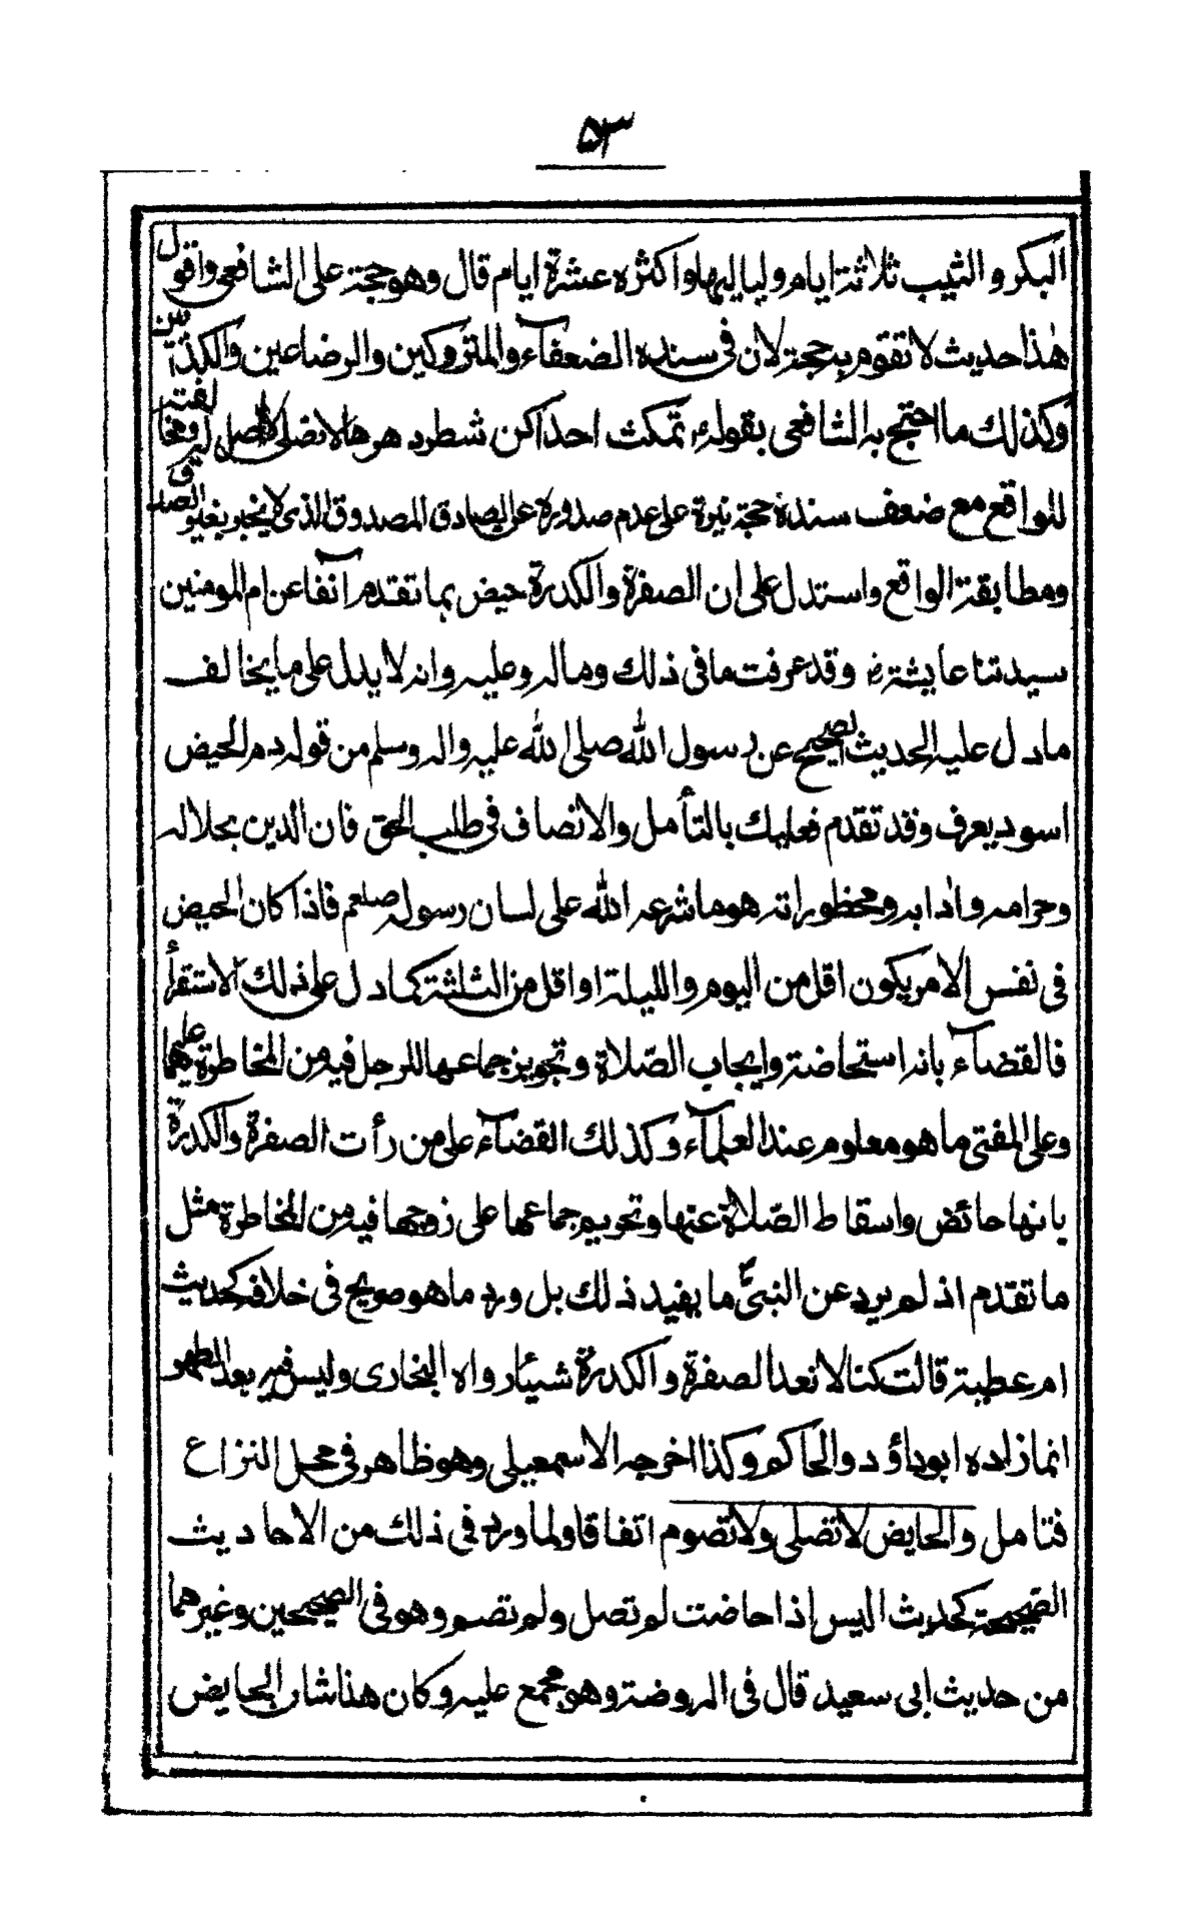 ٥٣
البكر والثيب ثلاثة ايام ولياليها واكثره عشرة ايام قال وهو حجة على الشافعى واقول
هٰذا حديث لا تقوم به حجة لان فى سنده الضعفآء والمتروكين والوضاعين والكذابين
وكذلك ما احتج به الشافعى بقوله تمكث احداكن شطر دهرها لا تصلى لا اصل له ومخالفته
للواقع مع ضعف سنده حجة نيرة على عدم صدوره عن الصادق المصدوق الذى لا يخبر بغير الصدق
ومطابقة الواقع واستدل على ان الصفرة والكدرة حيض بما تقدم آنفا عن ام المومنين
سيدتنا عايشة رض وقد عرفت ما فى ذلك وماله وعليه وانه لا يدل على ما يخالف
ما دل عليه الحديث الصحيح عن رسول الله صلى الله عليه واله وسلم من قوله دم الحيض
اسود يعرف وقد تقدم فعليك بالتأمل والانصاف فى طلب الحق فان الدين بحلاله
وحرامه واٰدابه ومحظوراته هو ما شرعه الله على لسان رسوله صلعم فاذا كان الحيض
فى نفس الامر يكون اقل من اليوم والليلة او اقل من الثلثة كما دل على ذلك الاستقرأ
فالقضآء بانه استحاضة وايجاب الصّلاة وتجويز جماعها للرجل فيه من المخاطرة عليهما
وعلى المفتى ما هو معلوم عند العلمآء وكذلك القضآء على من رأت الصفرة والكدرة
بانها حائض واسقاط الصّلاة عنها وتحويم جماعها على زوجها فيه من المخاطرة مثل
ما تقدم اذ لم يرد عن النبىّ ما يفيد ذلك بل ورد ما هو صريح فى خلافه كحديث
ام عطية قالت كنا لا نعد الصفرة والكدرة شيئا رواه البخارى وليس فيه بعد الطهر
انما زاده ابو داؤد والحاكم وكذا اخرجه الاسمعيلى وهو ظاهر فى محل النزاع
فتامل والحايض لا تصلى ولا تصوم اتفاقا ولما ورد فى ذلك من الاحاديث
الصحيحة كحديث اليس اذا حاضت لم تصل ولم تصم وهو فى الصحيحين وغيرهما
من حديث ابى سعيد قال فى الروضة وهو مجمع عليه وكان هذا شان الحايض